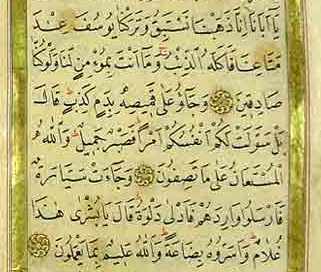 يَا اَبَانَا اِنَّا ذَهَبْنَا نَسْتَبِقُ وَتَرَكْنَا يُوسُفَ عِنْدَ
مَتَاعِنَا فَاَكَلَهُ الذِّئْبُ وَمَا اَنْتَ بِمُؤْمِنٍ لَنَا وَلَوْ كُنَّا
صَادِقِينَ وَجَاؤُ عَلٰى قَمِيصِهِ بِدَمٍ كَذِبٍ قَالَ
بَلْ سَوَّلَتْ لَكُمْ اَنْفُسُكُمْ اَمْرًا فَصَبْرٌ جَمِيلٌ وَاللّٰهُ
الْمُسْتَعَانُ عَلٰى مَا تَصِفُونَ وَجَاءَتْ سَيَّارَةٌ
فَاَرْسَلُوا وَارِدَهُمْ فَاَدْلٰى دَلْوَهُ قَالَ يَا بُشْرٰى هٰذَا
غُلَامٌ وَاَسَرُّوهُ بِضَاعَةً وَاللّٰهُ عَلِيمٌ بِمَا يَعْمَلُونَ